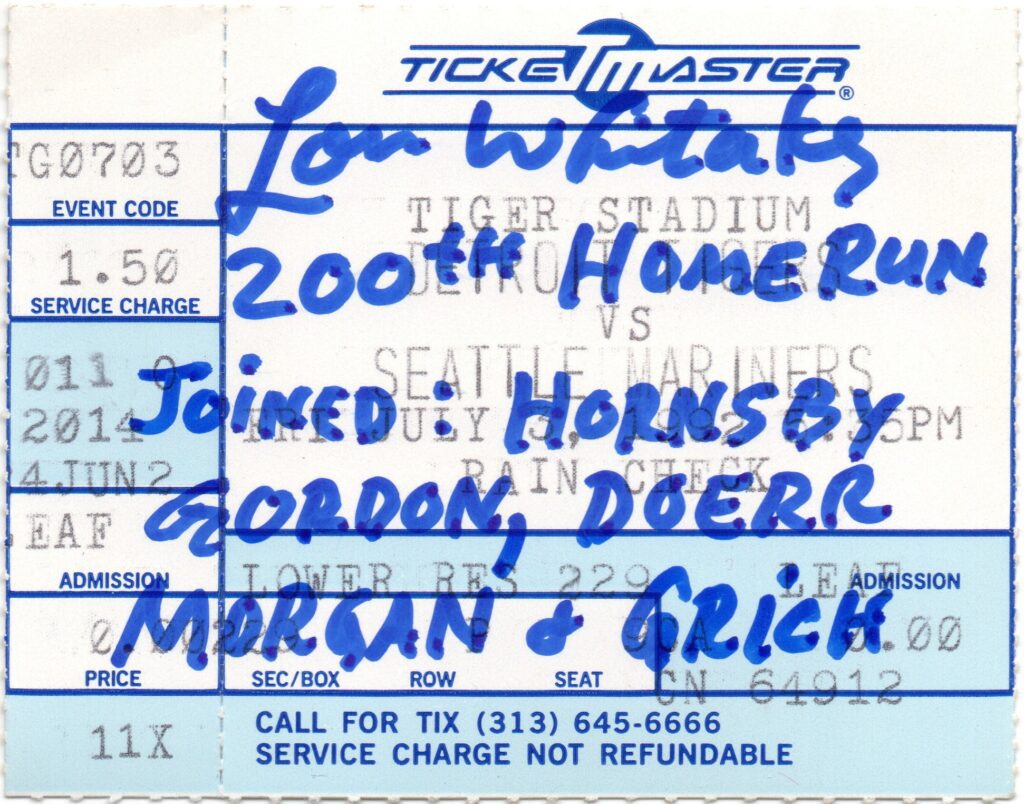 TICKETMASTER®
TG0703
EVENT CODE
1.50
SERVICE CHARGE
011 0
2014
4JUN2
LEAF
ADMISSION
0.00
PRICE
11X
Lou Whitaker
TIGER STADIUM
200TH HOMERUN
DETROIT TIGERS
VS
SEATTLE MARINERS
JOINED: HORNSBY
FRI JULY 3, 1992 5:35PM
RAIN CHECK
GORDON, DOERR
LOWER RES 229 LEAF ADMISSION
MORGAN & GRICH
229 P 0.00
SEC/BOX ROW SEAT
CN 64912
CALL FOR TIX (313) 645-6666
SERVICE CHARGE NOT REFUNDABLE